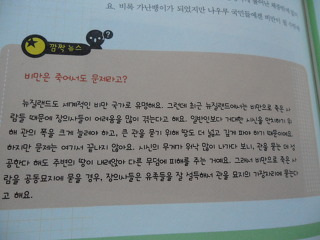 요. 비록 가난뱅이가 되었지만 나우루 국민들에겐 비만이
깜짝 뉴스
비만은 죽어서도 문제라고?
뉴질랜드도 세계적인 비만 국가로 유명해요. 그런데 최근 뉴질랜드에서는 비만으로 죽은 사
람들 때문에 장의사들이 어려움을 많이 겪는다고 해요. 일반인보다 거대한 시신을 안치하기 위
해 관의 폭을 크게 늘려야 하고, 큰 관을 묻기 위해 땅도 더 넓고 깊게 파야 하기 때문이에요.
하지만 문제는 여기서 끝나지 않아요. 시신의 무게가 워낙 많이 나가다 보니, 관을 묻는 데 성
공한다 해도 주변의 땅이 내려앉아 다른 무덤에 피해를 주는 거예요. 그래서 비만으로 죽은 사
람을 공동묘지에 묻을 경우, 장의사들은 유족들을 잘 설득해서 관을 묘지의 가장자리에 묻는다
고 해요.